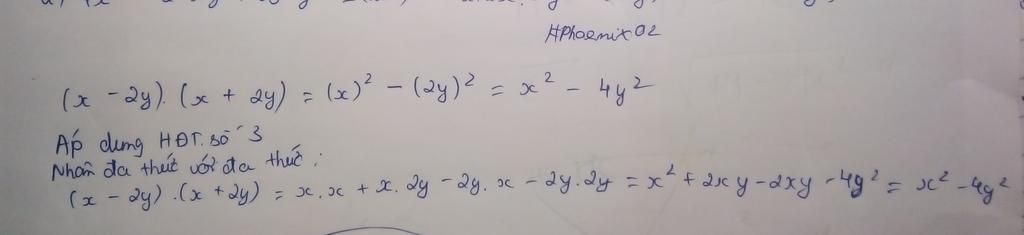 #Phoenix02
(x - 2y).(x + 2y) = (x)² - (2y)² = x² - 4y²
Áp dụng HĐT số 3
Nhân đa thức với đa thức:
(x - 2y).(x + 2y) = x.x + x.2y - 2y.x - 2y.2y = x² + 2xy - 2xy - 4y² = x² - 4y²